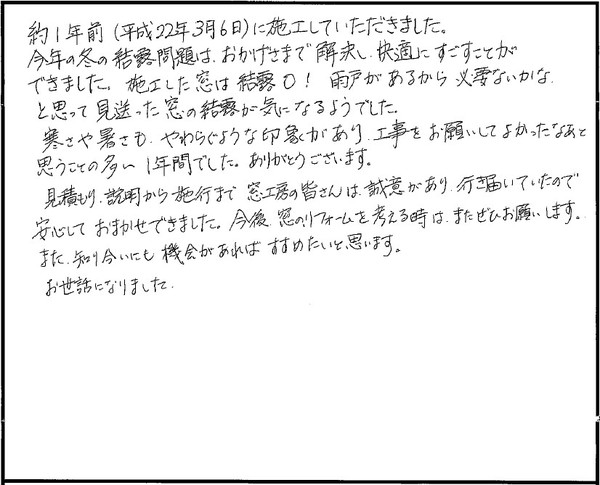 約1年前(平成22年3月6日)に施工していただきました。
今年の冬の結露問題は、おかげさまで解決し、快適にすごすことが
できました。施工した窓は結露0! 雨戸があるから必要ないかな、
と思って見送った窓の結露が気になるようでした。
寒さや暑さも、やわらぐような印象があり、工事をお願いしてよかったなあと
思うことの多い1年間でした。ありがとうございます。
見積もり、説明から施行まで窓工房の皆さんは、誠意があり、行き届いていたので
安心しておまかせできました。今後、窓のリフォームを考える時は、またぜひお願いします。
また、知り合いにも機会があればすすめたいと思います。
お世話になりました。